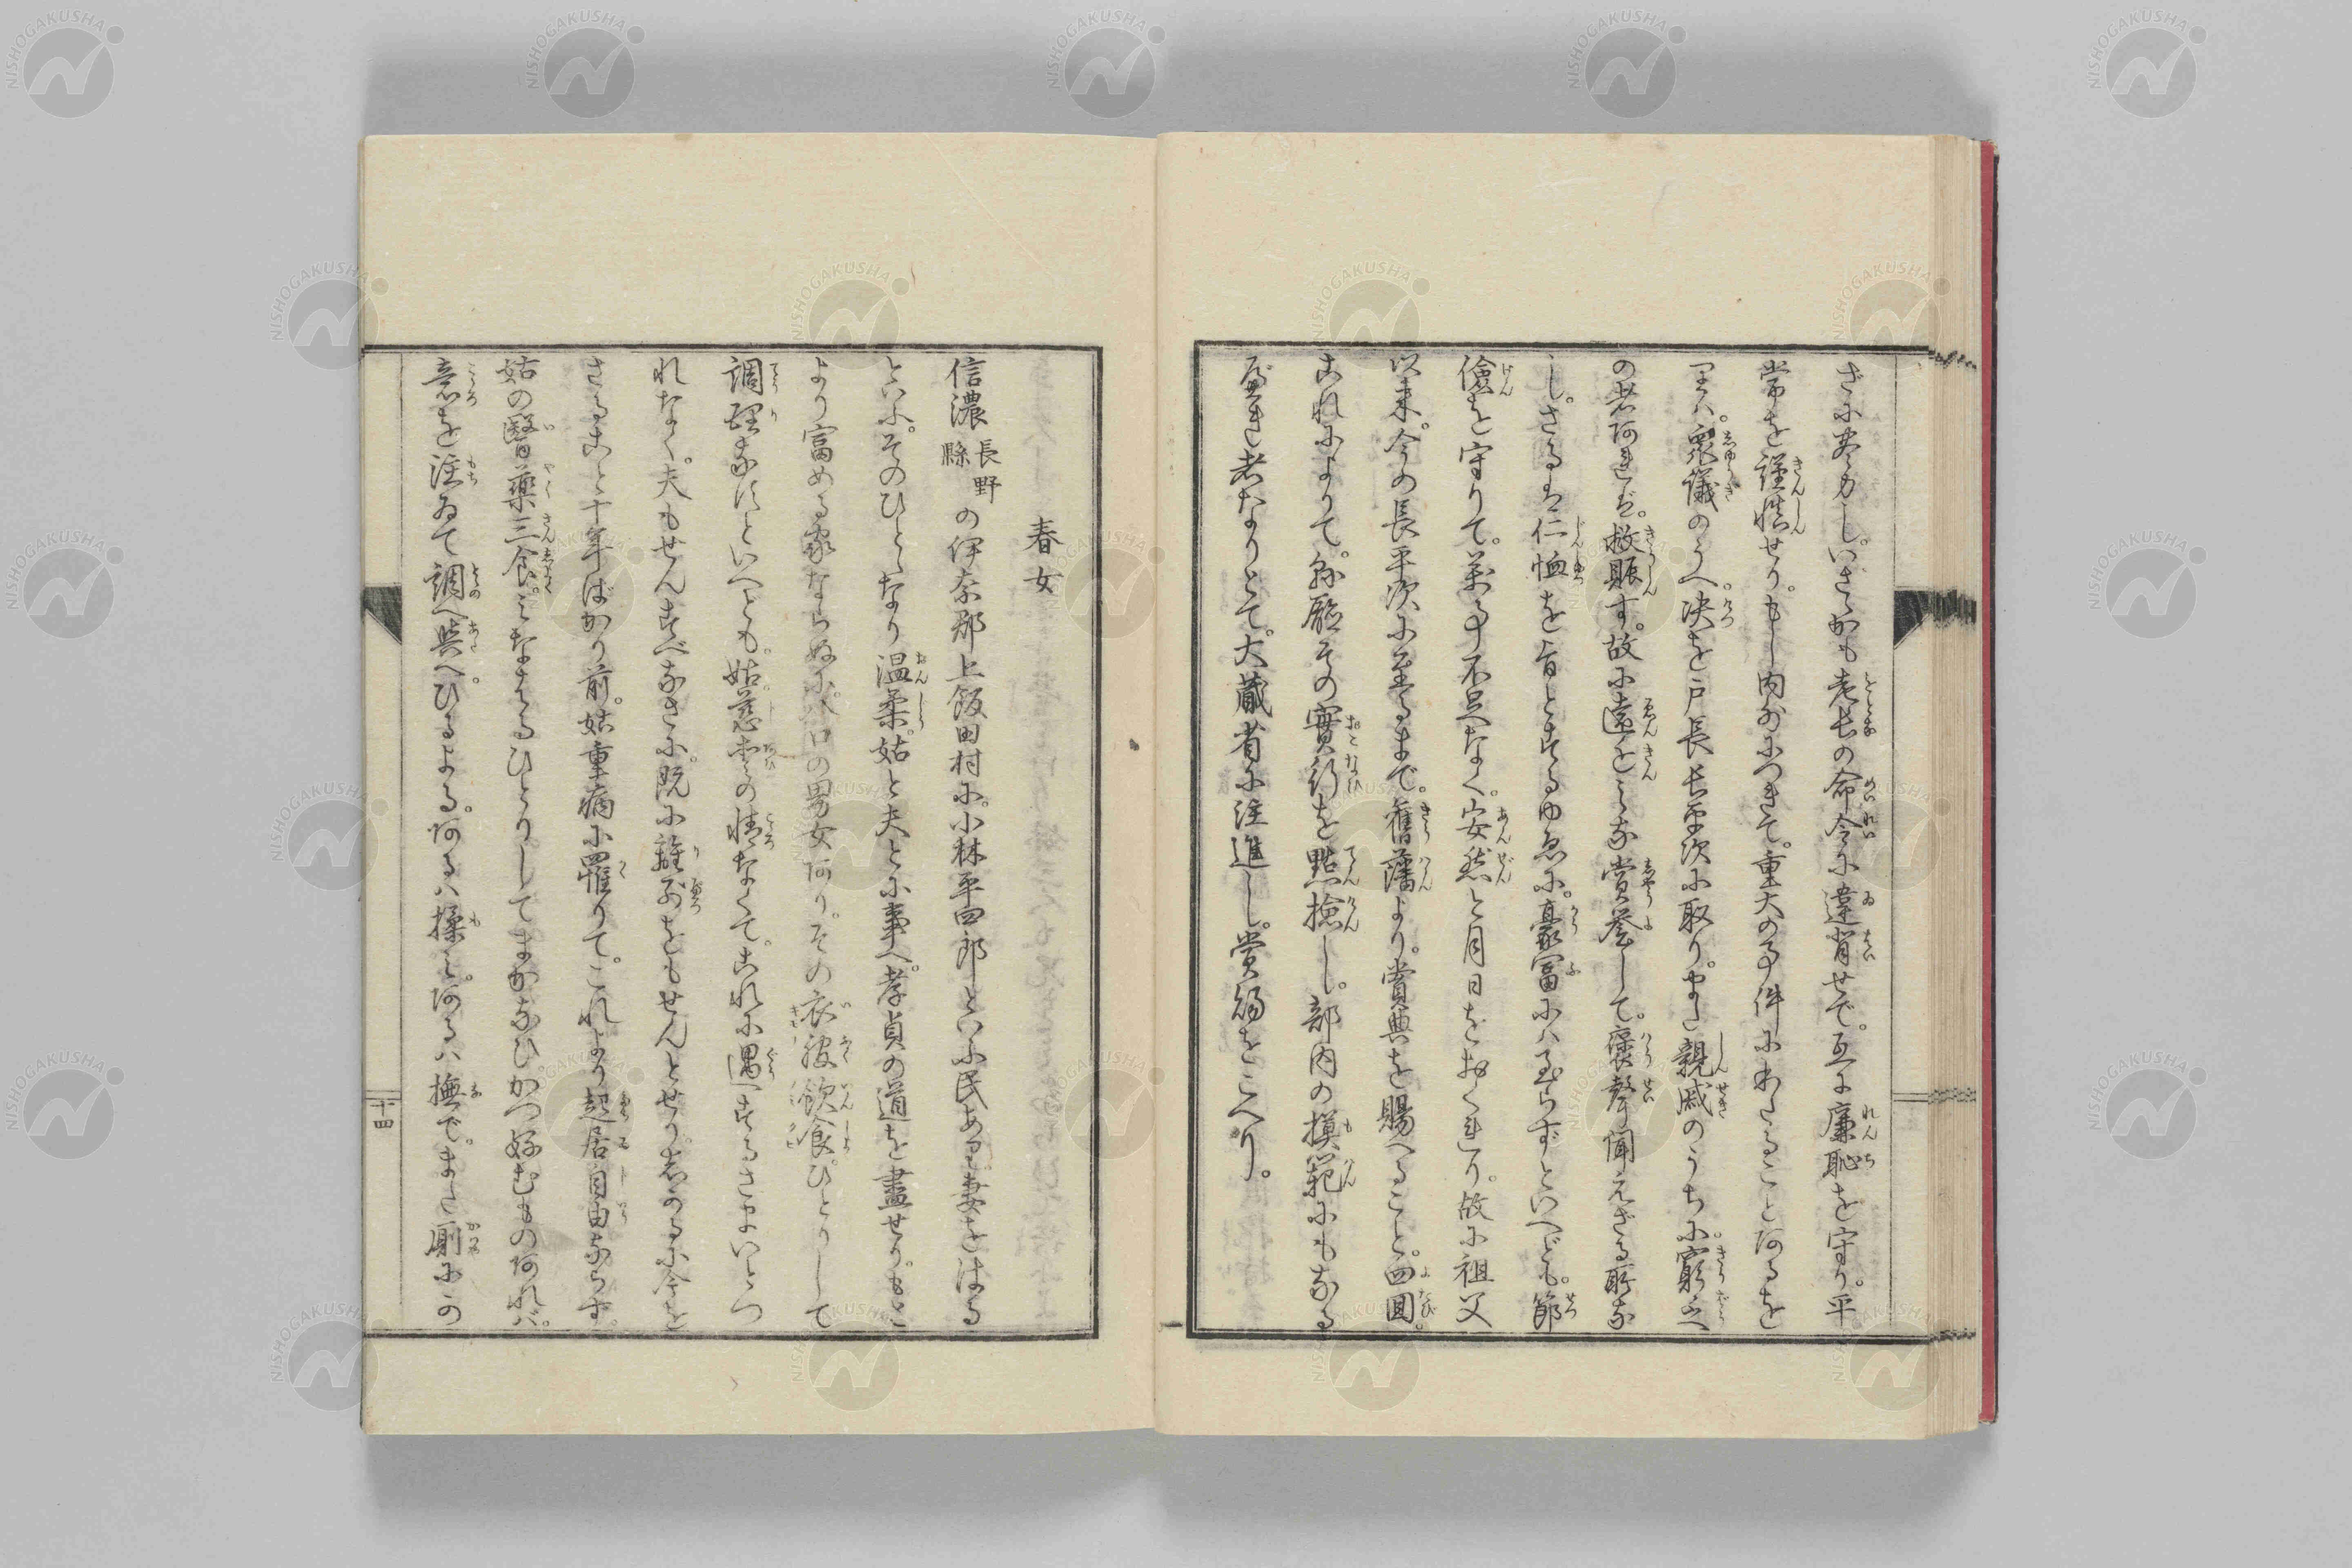 ざに尽力し。いさゝかも老長の命令に違背せで。互に廉恥を守り。平
常を謹慎せり。もし内外につきて。重大の事件にわたることあるを
りハ。衆議のうへ。決を戸長長平次に取り。また親戚のうちに。窮乏
の者あれバ。救賑す。故に遠近みな賞誉して。褒声聞えざる所な
し。さるは仁恤を旨とするゆゑに。豪富にハ至らずといへども。節
儉を守りて。萬事不足なく。安然と月日をおくれり。故に祖父
以来。今の長平次に至るまで。舊藩より。賞典を賜へること。四回。
これによりて。縣廳その實行を點撿し。部内の摸範にもなる
べき者なりとて。大蔵省に注進し。賞賜をこへり。
春女
信濃長野縣の伊奈郡上飯田村に。小林平四郎といふ民あり妻をはる
といふ。そのひとゝなり温柔。姑と夫とに事へ。孝貞の道を盡せり。もと
より富める家ならぬに。八口の男女あり。その衣服飲食ひとりして
調理なすといへども。姑慈愛の情なくて。これに遇するさまいとつ
れなく。夫もせんすべなきに。既に離別をもせんとせり。しかるに今を
さること十年ばかり前。姑重病に罹りて。これより起居自由ならず。
姑の醫藥三食。みなはるひとりしてまかなひかつ好むものあれバ。
意を注ゐて調へ與へ。ひるよる。あるハ揉み。あるハ撫で。また厠にか
十四
NISHOGAKUSHA